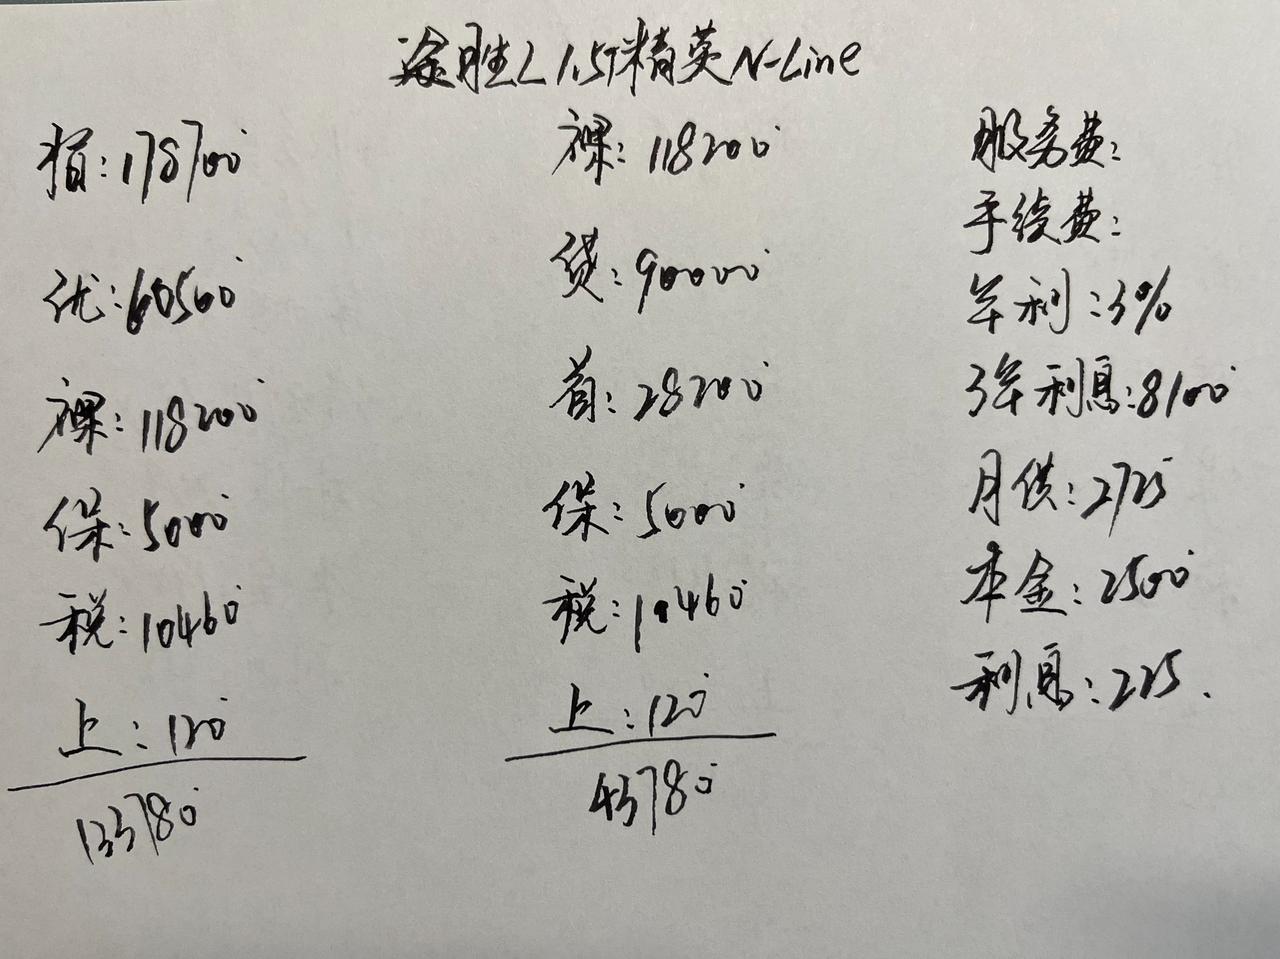 途胜L 1.5T精英N-Line
指:178700
优:60500
裸:118200
保:5000
税:10460
上:120
133780
裸:118200
贷:90000
首:28200
保:5000
税:10460
上:120
43780
服务费:
手续费:
年利:3%
3年利息:8100
月供:2725
本金:2500
利息:225.